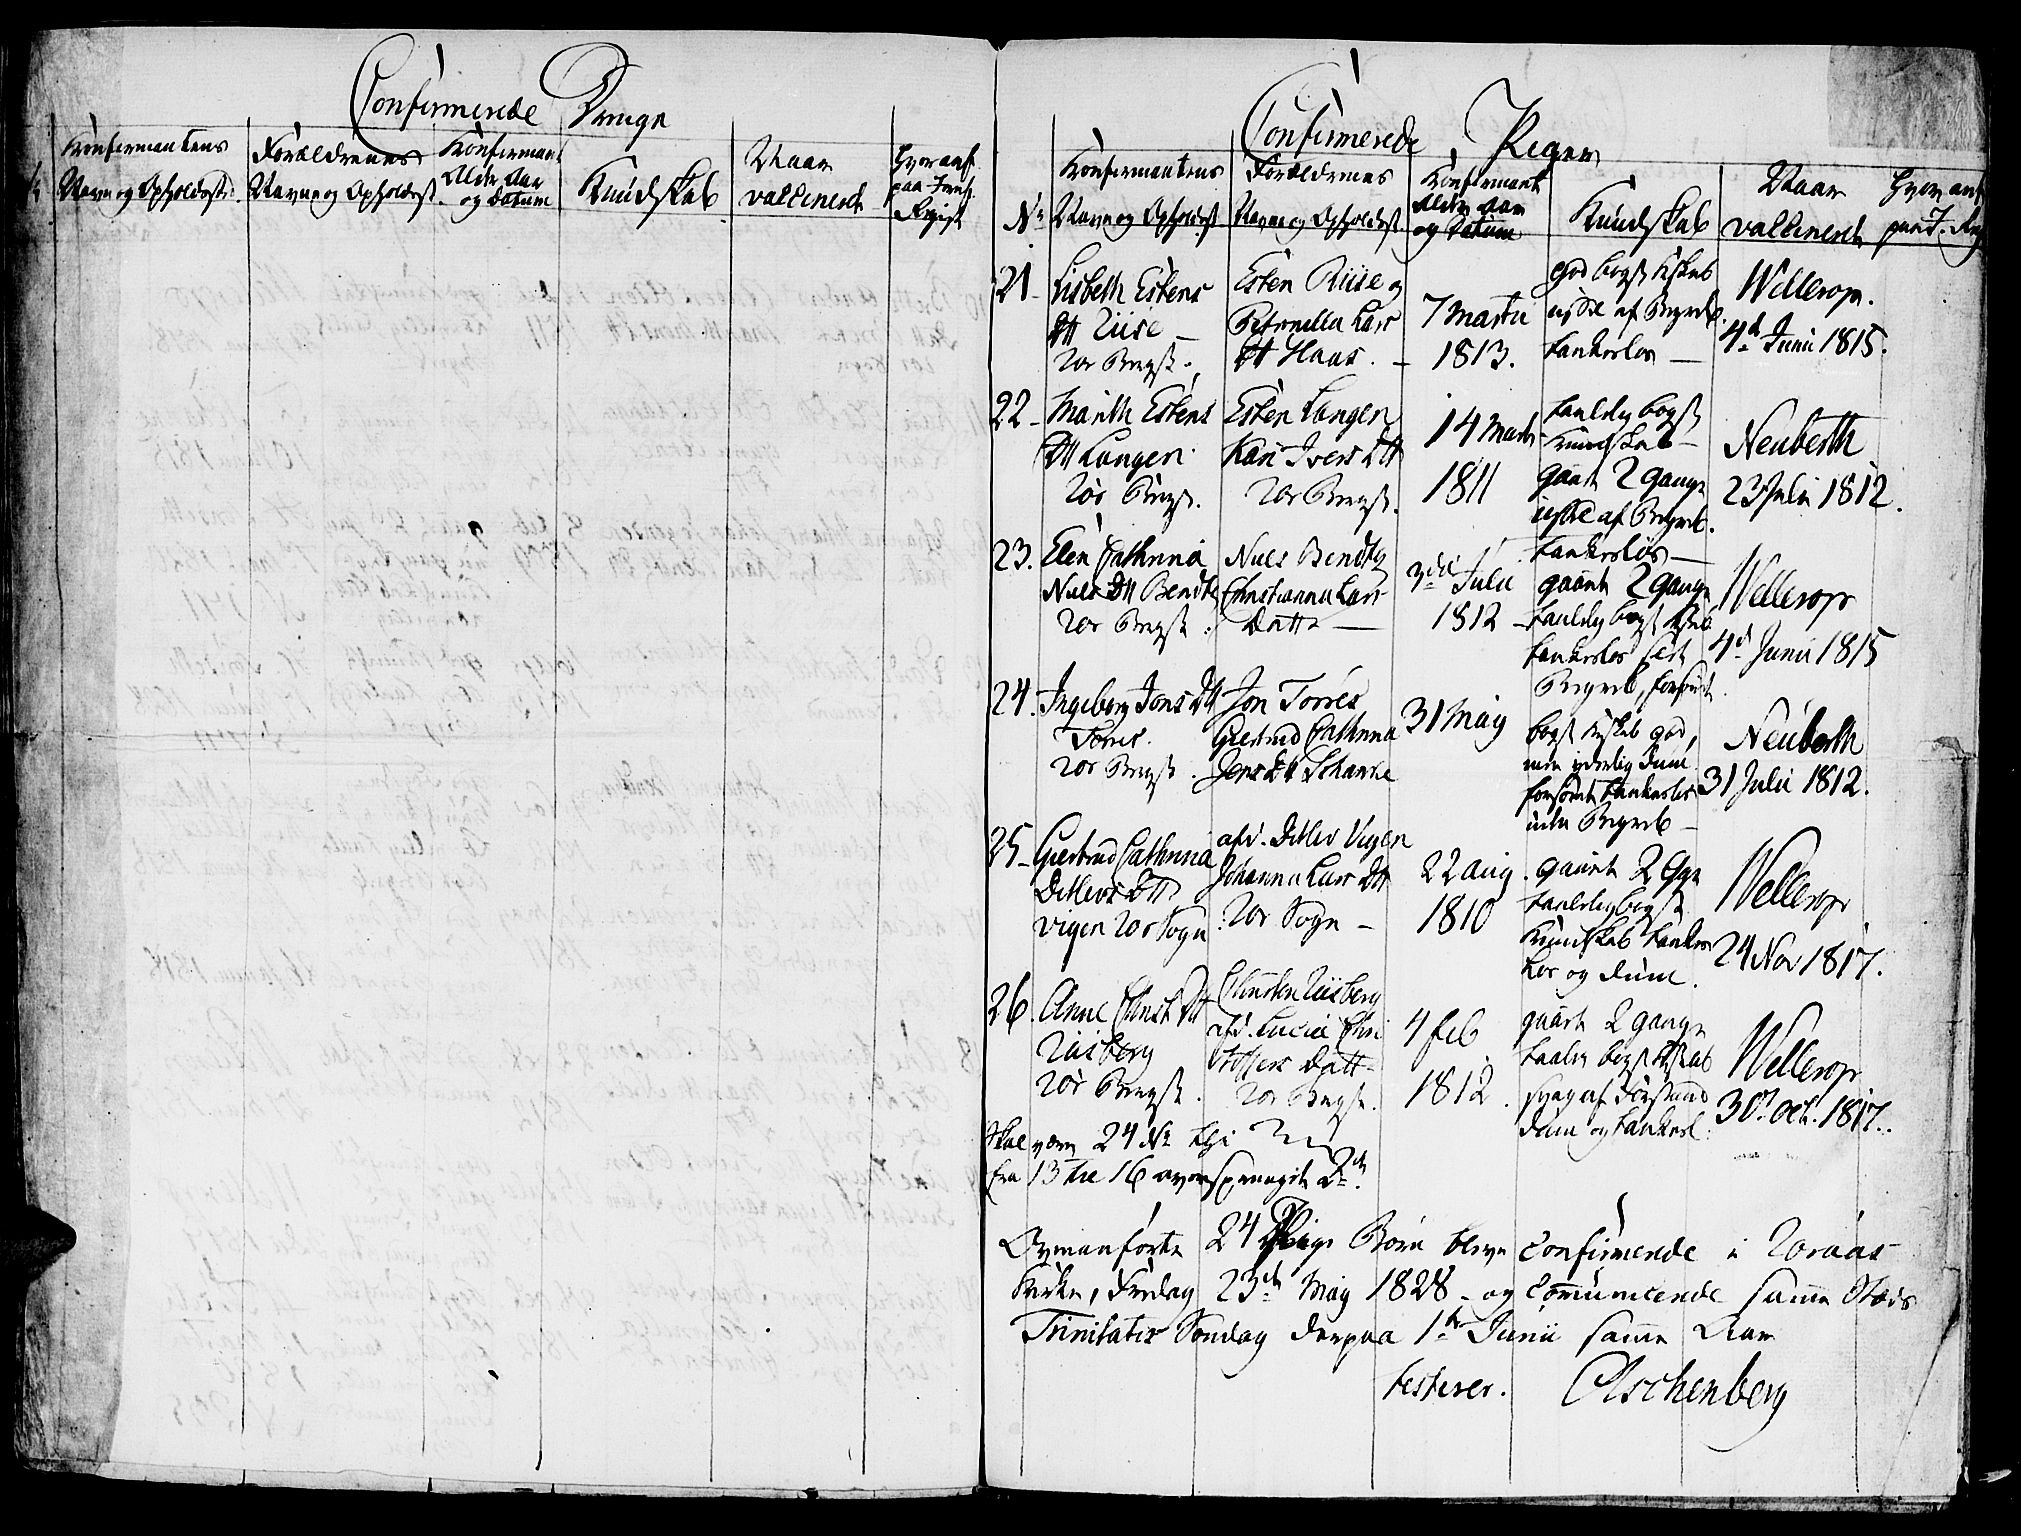 Confirmerede Drenge
Konfirmantens
Navn og Opholdst.
Forældrenes
Navne og Opholdst.
Konfirmant
Alder Aar
og Datum
Kundskab
Naar
vaccineret
Hvor anf.
paa Jevnf.
Regist.
Confirmerede Piger
No
Konfirmantens
Navn og Opholdst.
Forældrenes
Navne og Opholdst.
Konfirmant
Alder Aar
og Datum
Kundskab
Naar
vaccineret
Hvor anf
paa J. Reg
21
Lisbeth Estens
Dtt Riise
Rør Bergst.
Esten Riise og
Petronella Lars
Dtt Haas.
7 Martii
1813.
god bogst kskab
af Begreb
tankeløs
Wellerop.
4d Junii 1815.
22
Marith Estens
Dtt Langen
Rør Bergst.
Esten Langen
Kari Ivers Dtt
Rør Bergst.
14 Marti
1811
taalelig bogst
kundskab
gaaet 2 gange
af Begreb.
tankeløs
Neuberth
23 Julii 1812.
23.
Elen Cathrina
Niels Dtt Bendtz
Rør Bergst.
Niels Bendtz
Christianna Lars
Datt
3die Julii
1812
gaaet 2 gange
taalelig bogst kskab
tankeløs slet
Begreb, forsømt
Wellerop
4d Junii 1815
24.
Ingeborg Jons Dtt
Torres.
Rør Bergst.
Jon Torres
Giertrud Cathrina
Jens Dtt Schancke
31 May
bogst kskab god,
men yderlig dum
forsømt tankeløs
uden Begreb
Neuberth
31 Julii 1812.
25
Giertrud Cathrina
Detlevs Dtt
Vigen Rør Sogn
afd. Detlev Vigen
Johanna Lars Dtt
Rør Sogn
22 Aug.
1810
gaaet 2 Gge
taalelig bogst
Kundskab tanke
løs og dum.
Wellerop
24 Nov 1817.
26.
Anne Christ Dtt
Riisberg
Rør Bergst.
Christen Riisberg
afd. Lucia Chri
stoffers Datt
Rør Bergst.
4 Feb
1812.
gaaet 2 gange
taalig bogst kskab
svag af Forstand
dum og tankel.
Wellerop
30t Oct. 1817.
Skal være 24 No thi
fra 13 til 16 oversprunget 2de.
Ovenanførte 24 Pige Børn bleve Confirmerede i Røraas
Kirke, Fredag 23de May 1828 og Communicerede samme Steds
Trinitatis Søndag derpaa 1te Junii samme Aar
testerer. Aschenberg